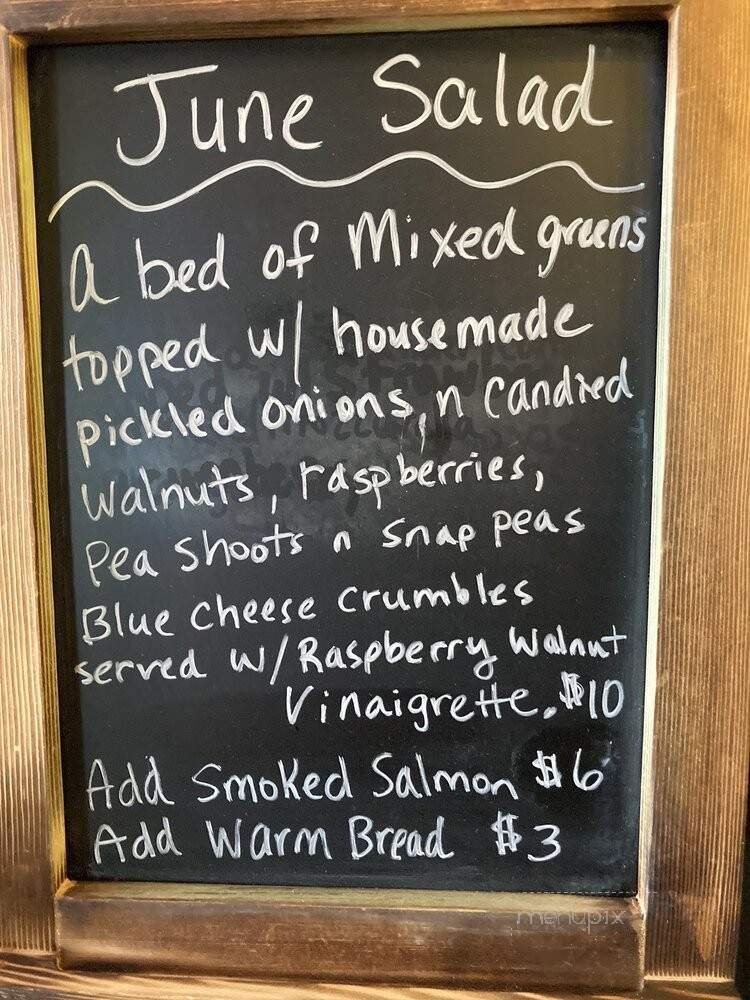 June Salad
A bed of Mixed greens
topped w/ housemade
pickled onions, n Candied
Walnuts, raspberries,
Pea Shoots n snap peas
Blue cheese crumbles
served w/Raspberry Walnut
Vinaigrette. $10
Add Smoked Salmon $6
Add Warm Bread $3
menupix